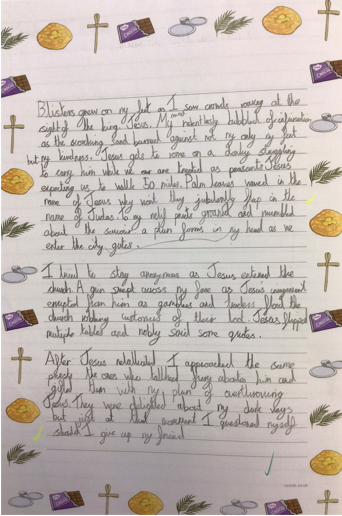 Blisters grew on my feet as I saw crowds roaring at the
sight of the king Jesus. My mind relentlessly bubbled of
as the scorching sand burned against not my only my feet
but my kindness. Jesus gets to come on a donkey struggling
to carry him while we are are treated as peasants Jesus
expecting us to walk 30 miles. Palm leaves waved in the
name of Jesus why wont they jubilantly flap in the
name of Judas to my my pride groaned and mumbled
about the saviour a plan forms in my head as we
enter the city gates.
I tried to stay anonymous as Jesus entered the
church. A grin swept across my face as Jesus's
erupted from him as gamblers and flood the
church robbing customers of their Jesus flipped
multiple tables and nobly said some quotes.
After Jesus retaliated I approached the same
the ones who talked about him and
told them with my plan of overthrowing
Jesus. They were delighted about my dark ways
but just at that moment I questioned myself
should I give up my friend